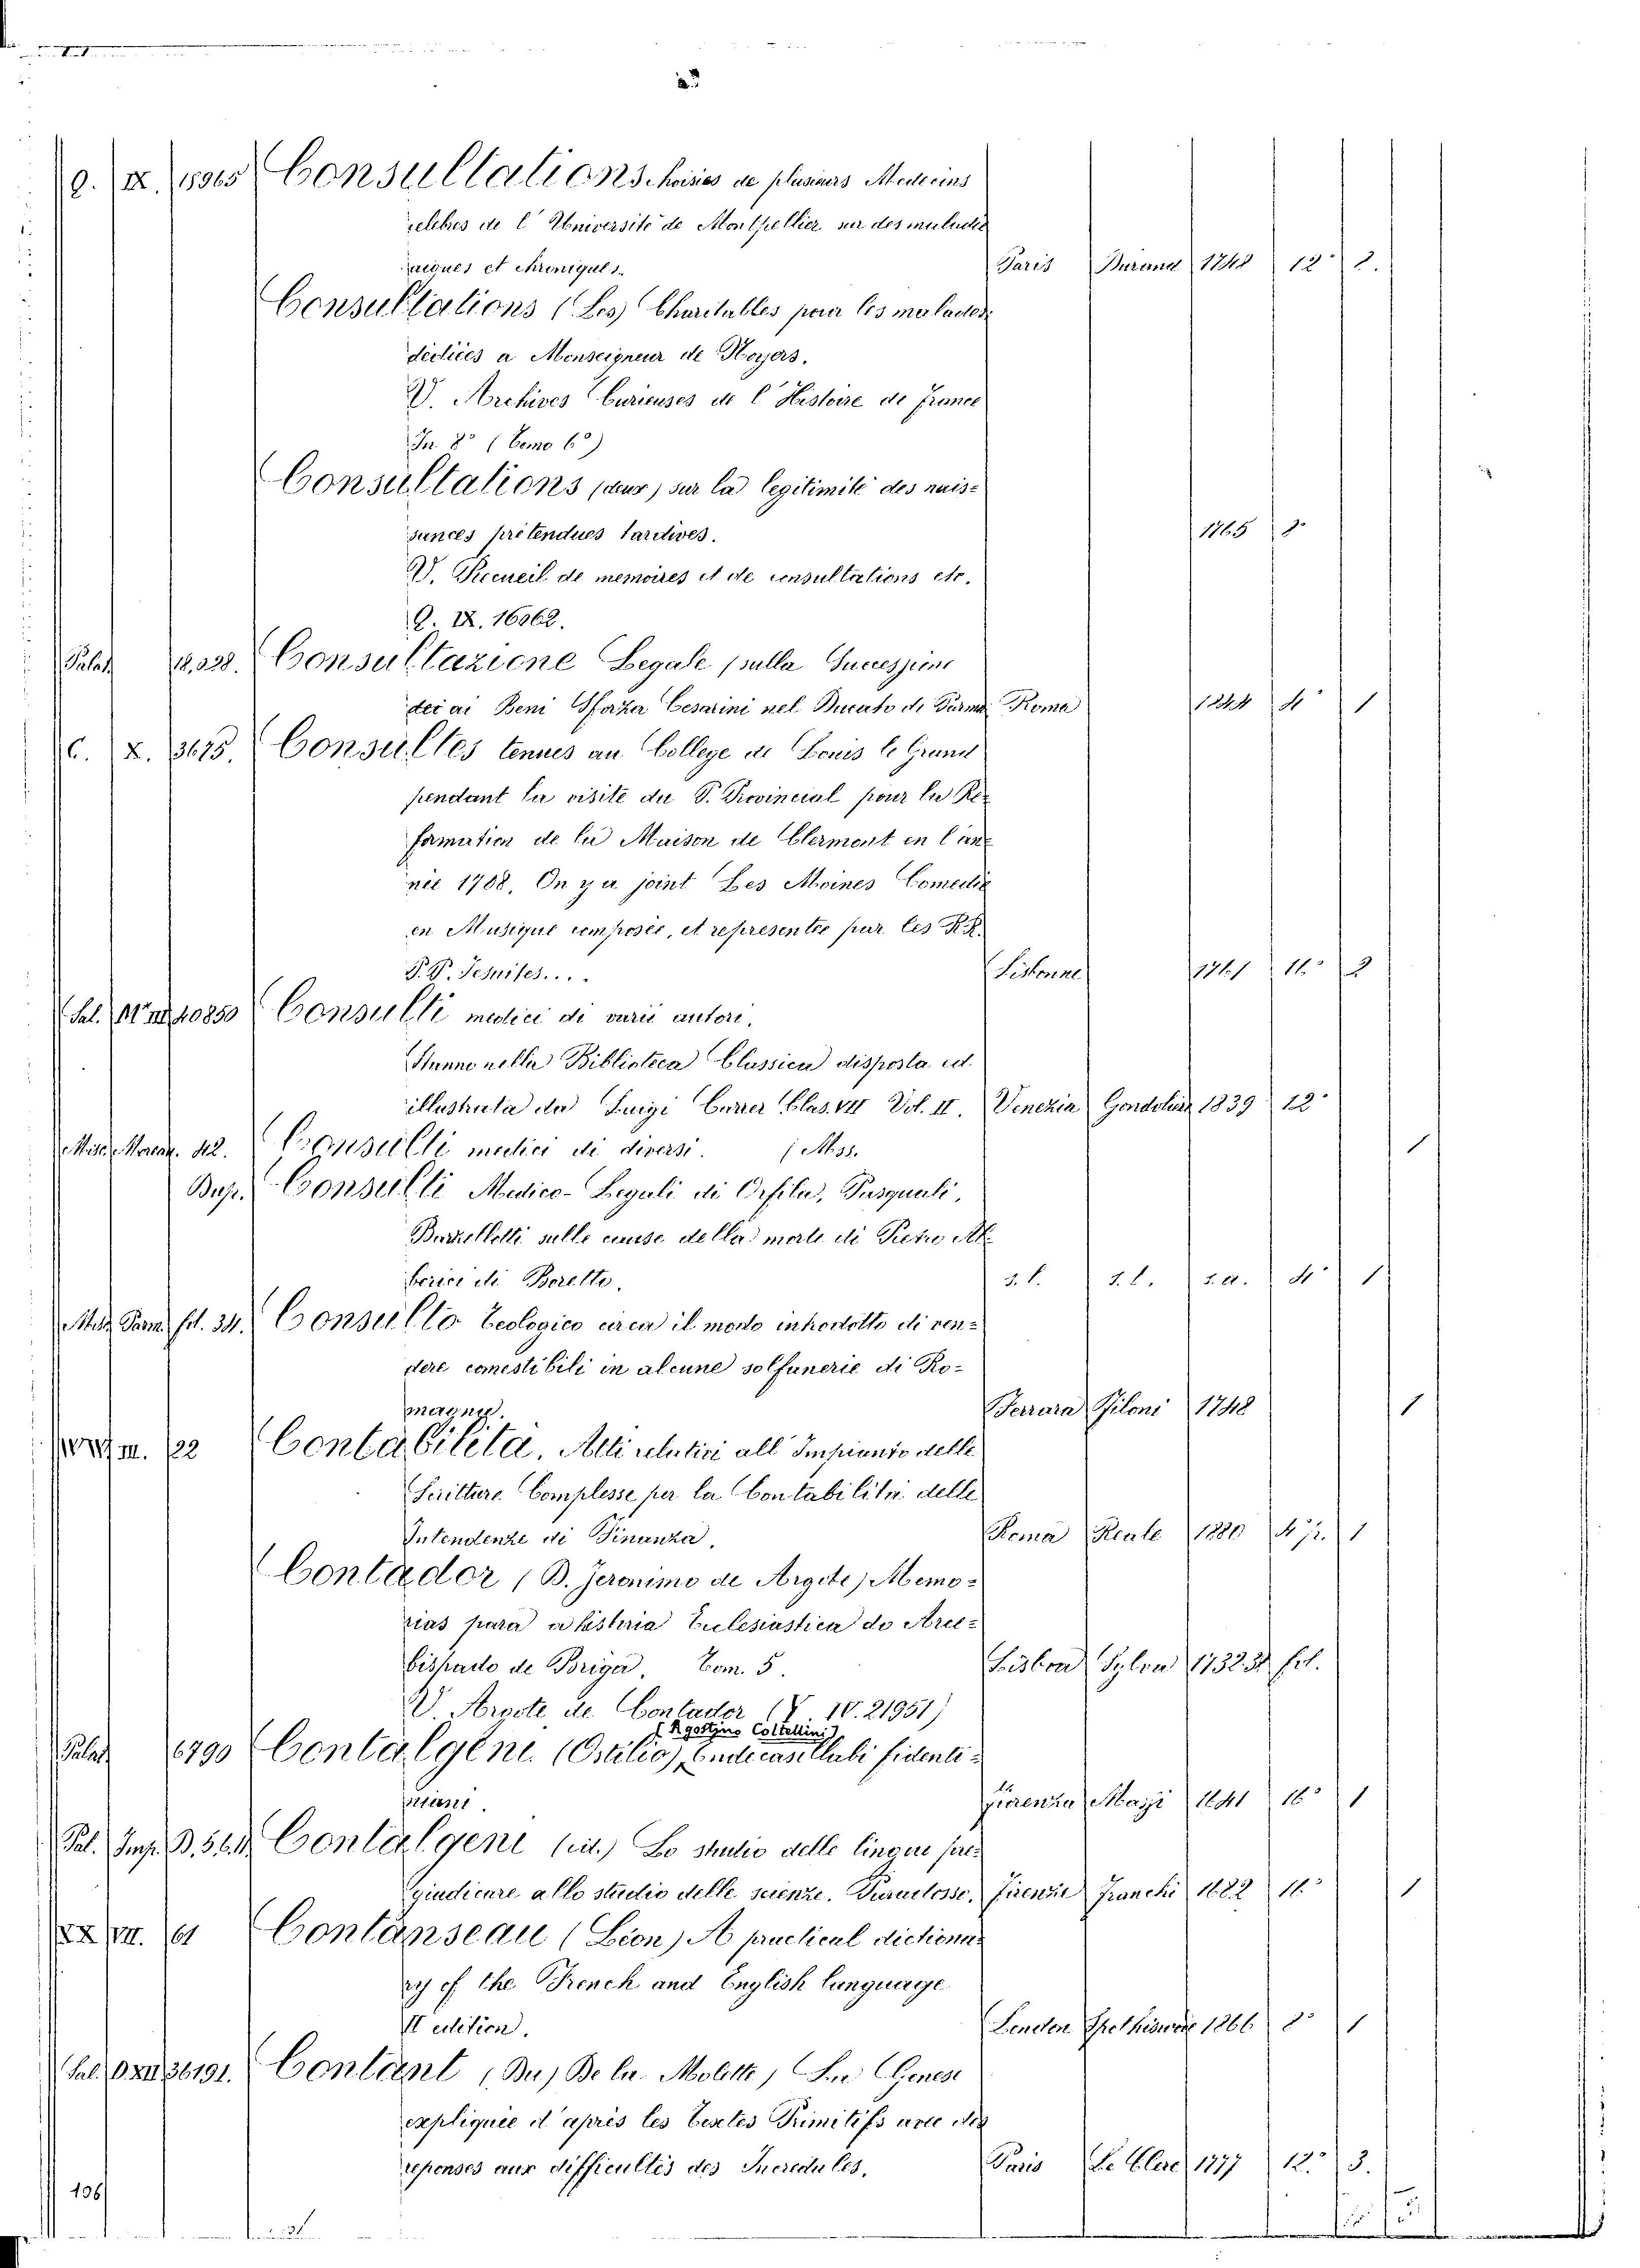 Q. IX. 15965 Consultations choisies de plusieurs Medecins
celebres de l'Université de Montpellier sur des maladies
aigues et chroniques. Paris Durand 1748 12° 2.
Consultations (Les) Charitables pour les malades
dediées a Monseigneur de Noyers.
V. Archives Curieuses de l'Histoire de France
In 8° (Tomo 6°)
Consultations (deux) sur la legitimité des nais=
sances prétendues tardives. 1765 8°
V. Recueil de memoires et de consultations etc.
Q. IX. 16062.
Palat. 18,228. Consultazione Legale (sulla Successione
dei ai Beni Sforza Cesarini nel Ducato di Parma Roma 1844 4° 1
C. X. 3675. Consultes tenues au College de Louis le Grand
pendant la visite du P. Provincial pour la Re=
famation de la Maison de Clermont en l'an=
née 1708. On y a joint Les Moines Comedie
en Musique composée, et representée par les RR.
P. P. Jesuites.... Lisbonne 1761 16° 2
Pal. 10850 Consulti medici di varii autori.
Stanno nella Biblioteca Classica disposta ed
illustrata da Luigi Carrer Clas. VII Vol. II. Venezia Gondolier 1839 12°
Misc. Morean. 42. Consulti medici di diversi. (Mss. 1
Dup. Consulti Medico-Legali di Orfila, Pasquali,
Barzellotti sulle cause della morte di Pietro Al=
berici di Boretto. s. l. s. l. s. a. 4° 1
Misc. Parm. fol. 34. Consulto Teologico circa il modo introdotto di ven=
dere comestibili in alcune solfanerie di Ro=
magna. Ferrara Giloni 1748 1
III. 22 Contabilità. Atti relativi all'Impianto delle
Scritture Complesse per la Contabilità delle
Intendenze di Finanza. Roma Reale 1880 4° 1
Contador (B. Jeronimo de Argote) Memo=
rias para a historia Eclesiastica do Arce=
bispado de Briga. Tom. 5. Lisboa Sylva 1732.34 fol.
V. Argote de Contador (V. IV. 21951)
(Agostino Coltellini)
Palat. 6790 Contalgeni (Ostilio) Endecasillabi fidenti=
ziani. Firenze Massi 1641 16° 1
Pal. Imp. B. 564. Contalgeni (id.) Lo studio delle lingue pre=
giudicare allo studio delle scienze. Paradosso. Firenze Franchi 1682 16° 1
XX VII. 61 Contanseau (Léon) A practical dictiona=
ry of the French and English language
II edition. London 1866 8° 1
Pal. O XII 36191. Contant (Du) De la Molette) La Genese
expliquée d'après les Textes Primitifs avec des
reponses aux difficultés des Incredules. Paris Le Clerc 1777 12.° 3.
136